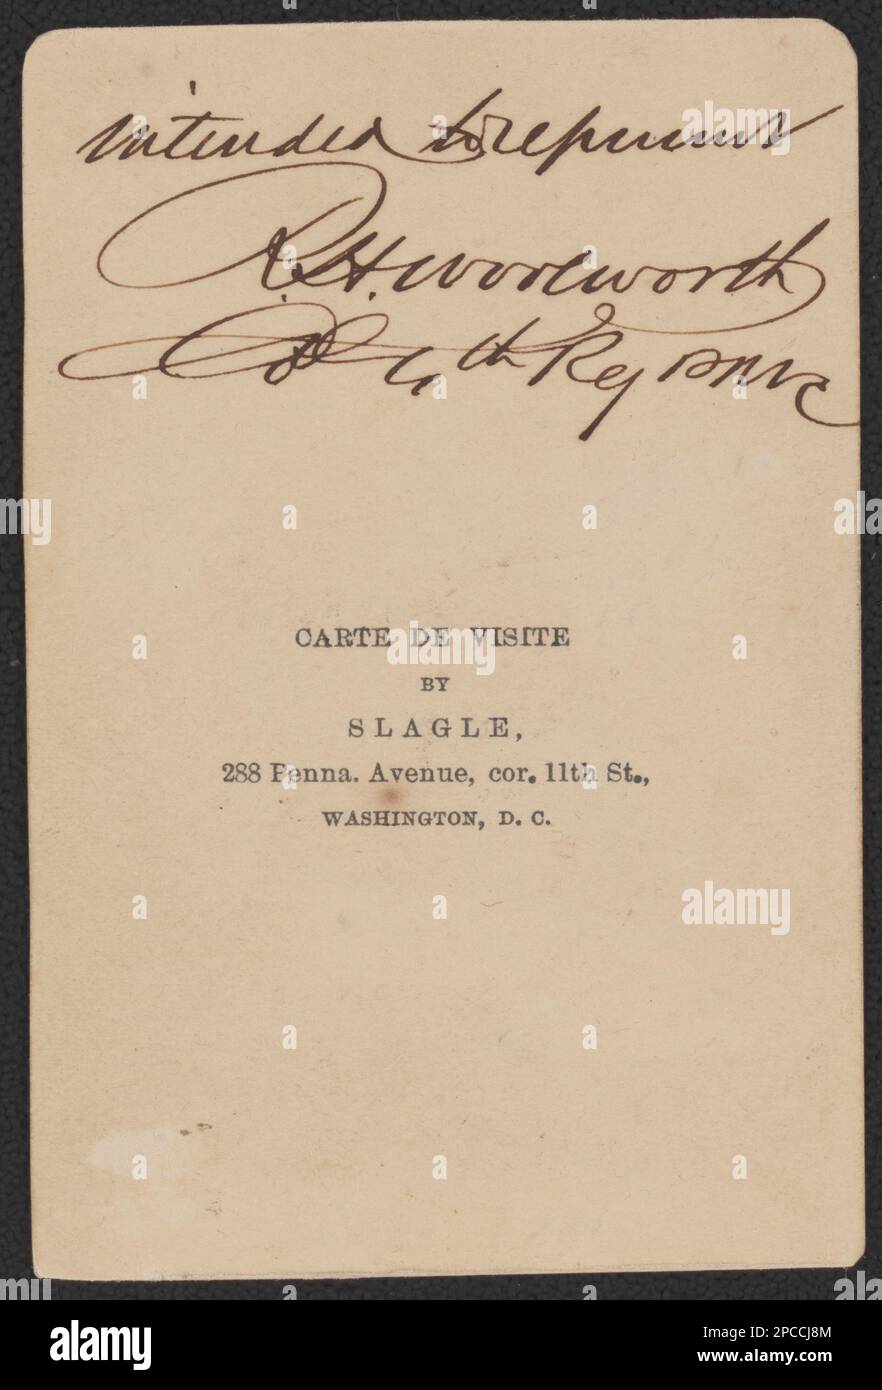 intended to represent
R. H. Woolworth
Col 4th Reg PRVC
CARTE DE VISITE
BY
SLAGLE,
288 Penna. Avenue, cor. 11th St.,
WASHINGTON, D. C.
alamy
alamy
Image ID: 2PCCJ8M
www.alamy.com